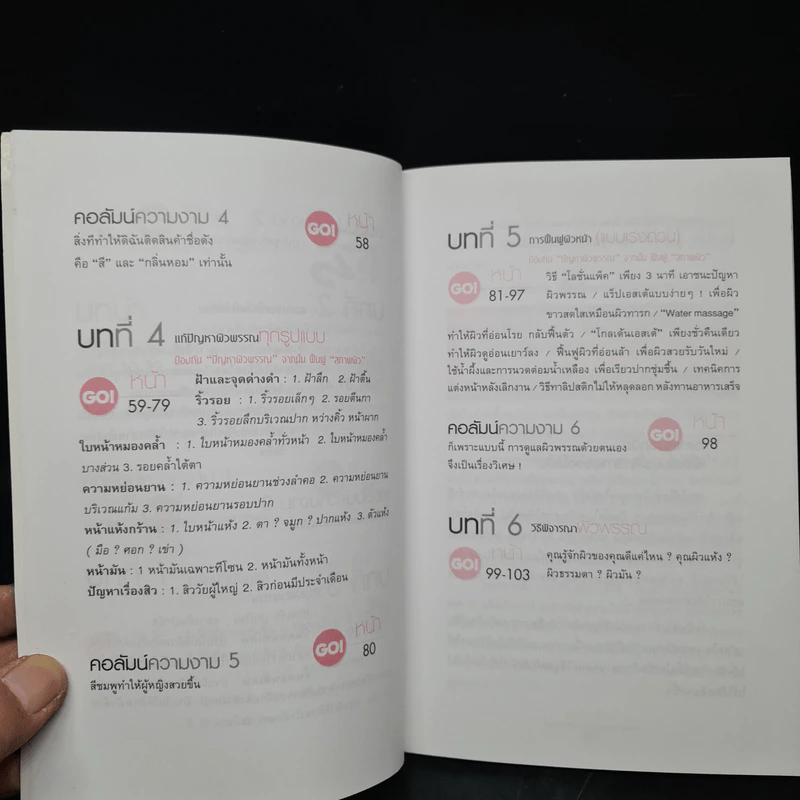 คอลัมน์ความงาม 4
สิ่งที่ทำให้ดิฉันติดสินค้าชื่อดัง
คือ “สี” และ “กลิ่นหอม” เท่านั้น
GO!
หน้า
58
บทที่ 4 แก้ปัญหาผิวพรรณทุกรูปแบบ
ป้องกัน “ปัญหาผิวพรรณ” จากนั้น ฟื้นฟู “สภาพผิว”
GO!
หน้า
59-79
ฝ้าและจุดด่างดำ : 1. ฝ้าลึก 2. ฝ้าตื้น
ริ้วรอย : 1. ริ้วรอยเล็กๆ 2. รอยตีนกา
3. ริ้วรอยลึกบริเวณปาก หว่างคิ้ว หน้าผาก
ใบหน้าหมองคล้ำ : 1. ใบหน้าหมองคล้ำทั่วหน้า 2. ใบหน้าหมองคล้ำ
บางส่วน 3. รอยคล้ำใต้ตา
ความหย่อนยาน : 1. ความหย่อนยานช่วงลำคอ 2. ความหย่อนยาน
บริเวณแก้ม 3. ความหย่อนยานรอบปาก
หน้าแห้งกร้าน : 1. ใบหน้าแห้ง 2. ตา ? จมูก ? ปากแห้ง 3. ตัวแห้ง
( มือ ? ศอก ? เข่า )
หน้ามัน : 1 หน้ามันเฉพาะทีโซน 2. หน้ามันทั้งหน้า
ปัญหาเรื่องสิว : 1. สิววัยผู้ใหญ่ 2. สิวก่อนมีประจำเดือน
คอลัมน์ความงาม 5
สีชมพูทำให้ผู้หญิงสวยขึ้น
GO!
หน้า
80
บทที่ 5 การฟื้นฟูผิวหน้า (แบบเร่งด่วน)
ป้องกัน “ปัญหาผิวพรรณ” จากนั้น ฟื้นฟู “สภาพผิว”
GO!
หน้า
81-97
วิธี “โลชั่นแพ็ค” เพียง 3 นาที เอาชนะปัญหา
ผิวพรรณ / แร็ปเอสเต้แบบง่ายๆ ! เพื่อผิว
ขาวสดใสเหมือนผิวทารก / “Water massage”
ทำให้ผิวที่อ่อนโรย กลับฟื้นตัว / “โกลเด้นเอสเต้” เพียงชั่วคืนเดียว
ทำให้ผิวดูอ่อนเยาว์ลง / ฟื้นฟูผิวที่อ่อนล้า เพื่อผิวสวยรับวันใหม่ /
ใช้น้ำผึ้งและการนวดต่อมน้ำเหลือง เพื่อเรียวปากชุ่มชื้น / เทคนิคการ
แต่งหน้าหลังเลิกงาน / วิธีทาลิปสติกไม่ให้หลุดลอก หลังทานอาหารเสร็จ
คอลัมน์ความงาม 6
ก็เพราะแบบนี้ การดูแลผิวพรรณด้วยตนเอง
จึงเป็นเรื่องวิเศษ !
GO!
หน้า
98
บทที่ 6 วิธีพิจารณาผิวพรรณ
GO!
หน้า
99-103
คุณรู้จักผิวของคุณดีแค่ไหน ? คุณผิวแห้ง ?
ผิวธรรมดา ? ผิวมัน ?